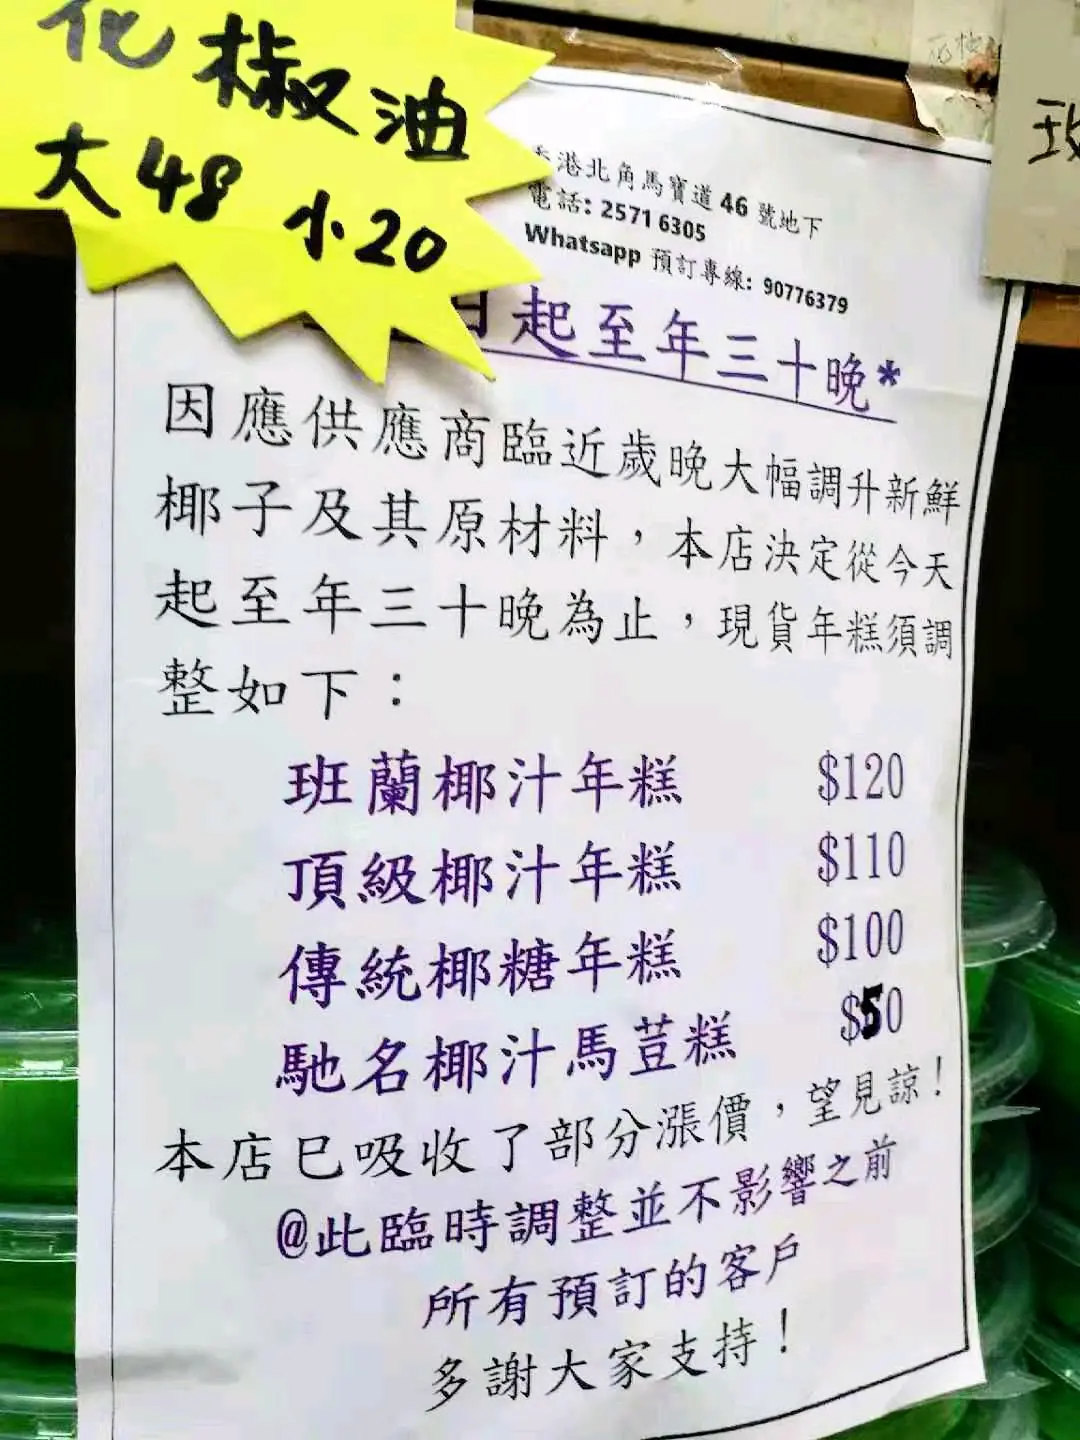 花椒油
大48 小20
香港北角馬寶道 46 號地下
電話: 2571 6305
Whatsapp 預訂專線: 90776379
日起至年三十晚*
因應供應商臨近歲晚大幅調升新鮮
椰子及其原材料，本店決定從今天
起至年三十晚為止，現貨年糕須調
整如下：
班蘭椰汁年糕 $120
頂級椰汁年糕 $110
傳統椰糖年糕 $100
馳名椰汁馬荳糕 $50
本店已吸收了部分漲價，望見諒！
@此臨時調整並不影響之前
所有預訂的客戶
多謝大家支持！